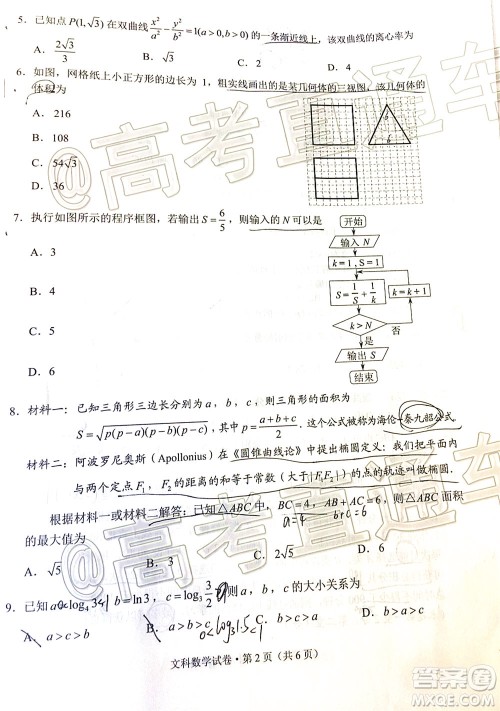 5. 已知点 P(1,√3) 在双曲线 x²/a² − y²/b² = 1(a>0,b>0) 的一条渐近线上，该双曲线的离心率为
A. 2√3/3 B. √3 C. 2 D. 4
6. 如图，网格纸上小正方形的边长为 1，粗实线画出的是某几何体的三视图，该几何体的
体积为
A. 216
B. 108
C. 54√3
D. 36
6
6
7. 执行如图所示的程序框图，若输出 S=6/5，则输入的 N 可以是
A. 3
B. 4
C. 5
D. 6
开始
输入 N
k=1, S=1
S=1/S+1/k
k=k+1
k>N
否
是
输出 S
结束
8. 材料一：已知三角形三边长分别为 a，b，c，则三角形的面积为
S=√p(p−a)(p−b)(p−c)，其中 p=(a+b+c)/2. 这个公式被称为海伦-秦九韶公式
材料二：阿波罗尼奥斯（Apollonius）在《圆锥曲线论》中提出椭圆定义：我们把平面内
与两个定点 F₁，F₂ 的距离的和等于常数（大于|F₁F₂|）的点的轨迹叫做椭圆.
根据材料一或材料二解答：已知△ABC 中，BC=4，AB+AC=6，则△ABC 面积
a=4 b+c=6
的最大值为
A. √5 B. 3 C. 2√5 D. 6
9. 已知 b=ln3，c=log₃ 3/2，则 a，b，c 的大小关系为
A. a>c>b B. a>b>c C. b>a>c D. b>c>a
文科数学试卷·第 2 页（共 6 页）
@高考直通车
@高考直通车
答案圈